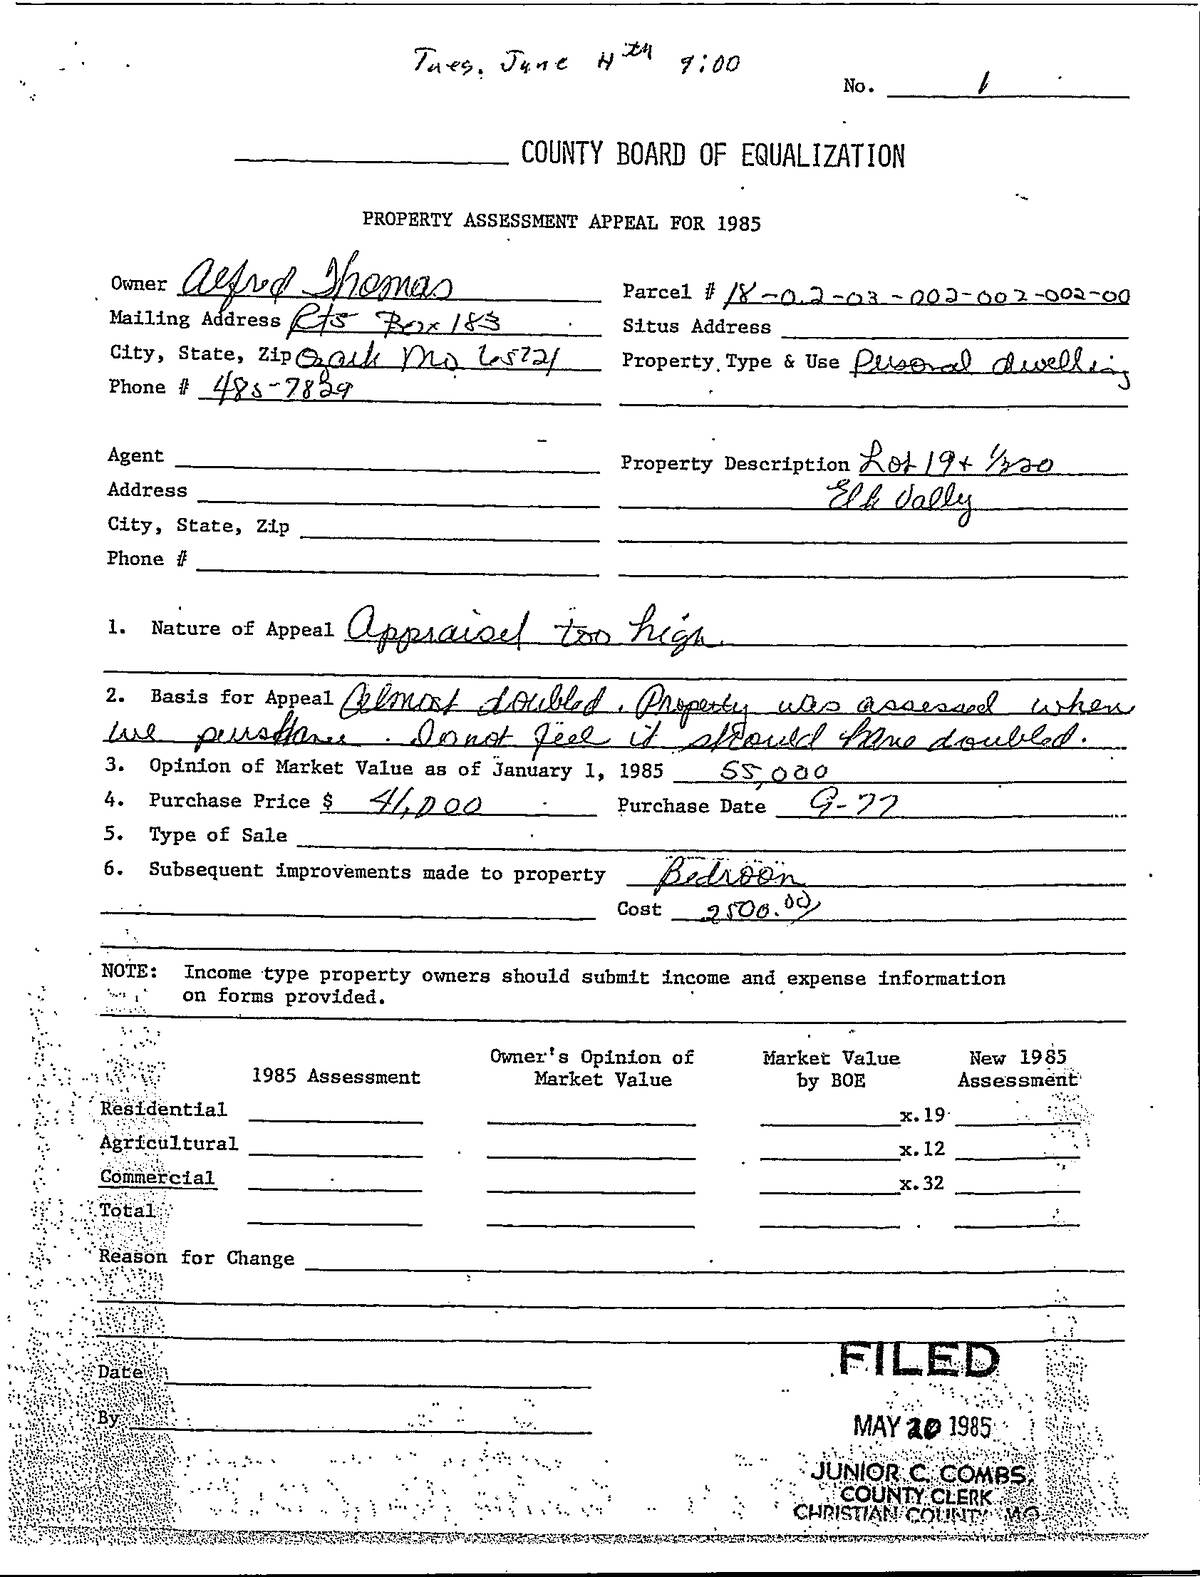 Tues. June 4th 9:00
No. 1
COUNTY BOARD OF EQUALIZATION
PROPERTY ASSESSMENT APPEAL FOR 1985
Owner Alfred Thomas
Parcel # 18-02-03-002-002-002-00
Mailing Address Rt5 Box 183
Situs Address
City, State, Zip Ozark Mo 65721
Property Type & Use Personal dwelling
Phone # 485-7829
Agent
Property Description Lot 19 + 1/2 20
Address
Elk Vally
City, State, Zip
Phone #
1. Nature of Appeal Appraisel too high.
2. Basis for Appeal Almost doubled. Property was assessed when
we . Do not feel it should have doubled.
3. Opinion of Market Value as of January 1, 1985 55,000
4. Purchase Price $ 41,000 Purchase Date 9-77
5. Type of Sale
6. Subsequent improvements made to property Bedroom
Cost 2500.00
NOTE: Income type property owners should submit income and expense information
on forms provided.
1985 Assessment
Owner's Opinion of
Market Value
Market Value
by BOE
New 1985
Assessment
Residential x.19
Agricultural x.12
Commercial x.32
Total
Reason for Change
Date
By
FILED
MAY 20 1985
JUNIOR C. COMBS.
COUNTY CLERK
CHRISTIAN COUNTY MO